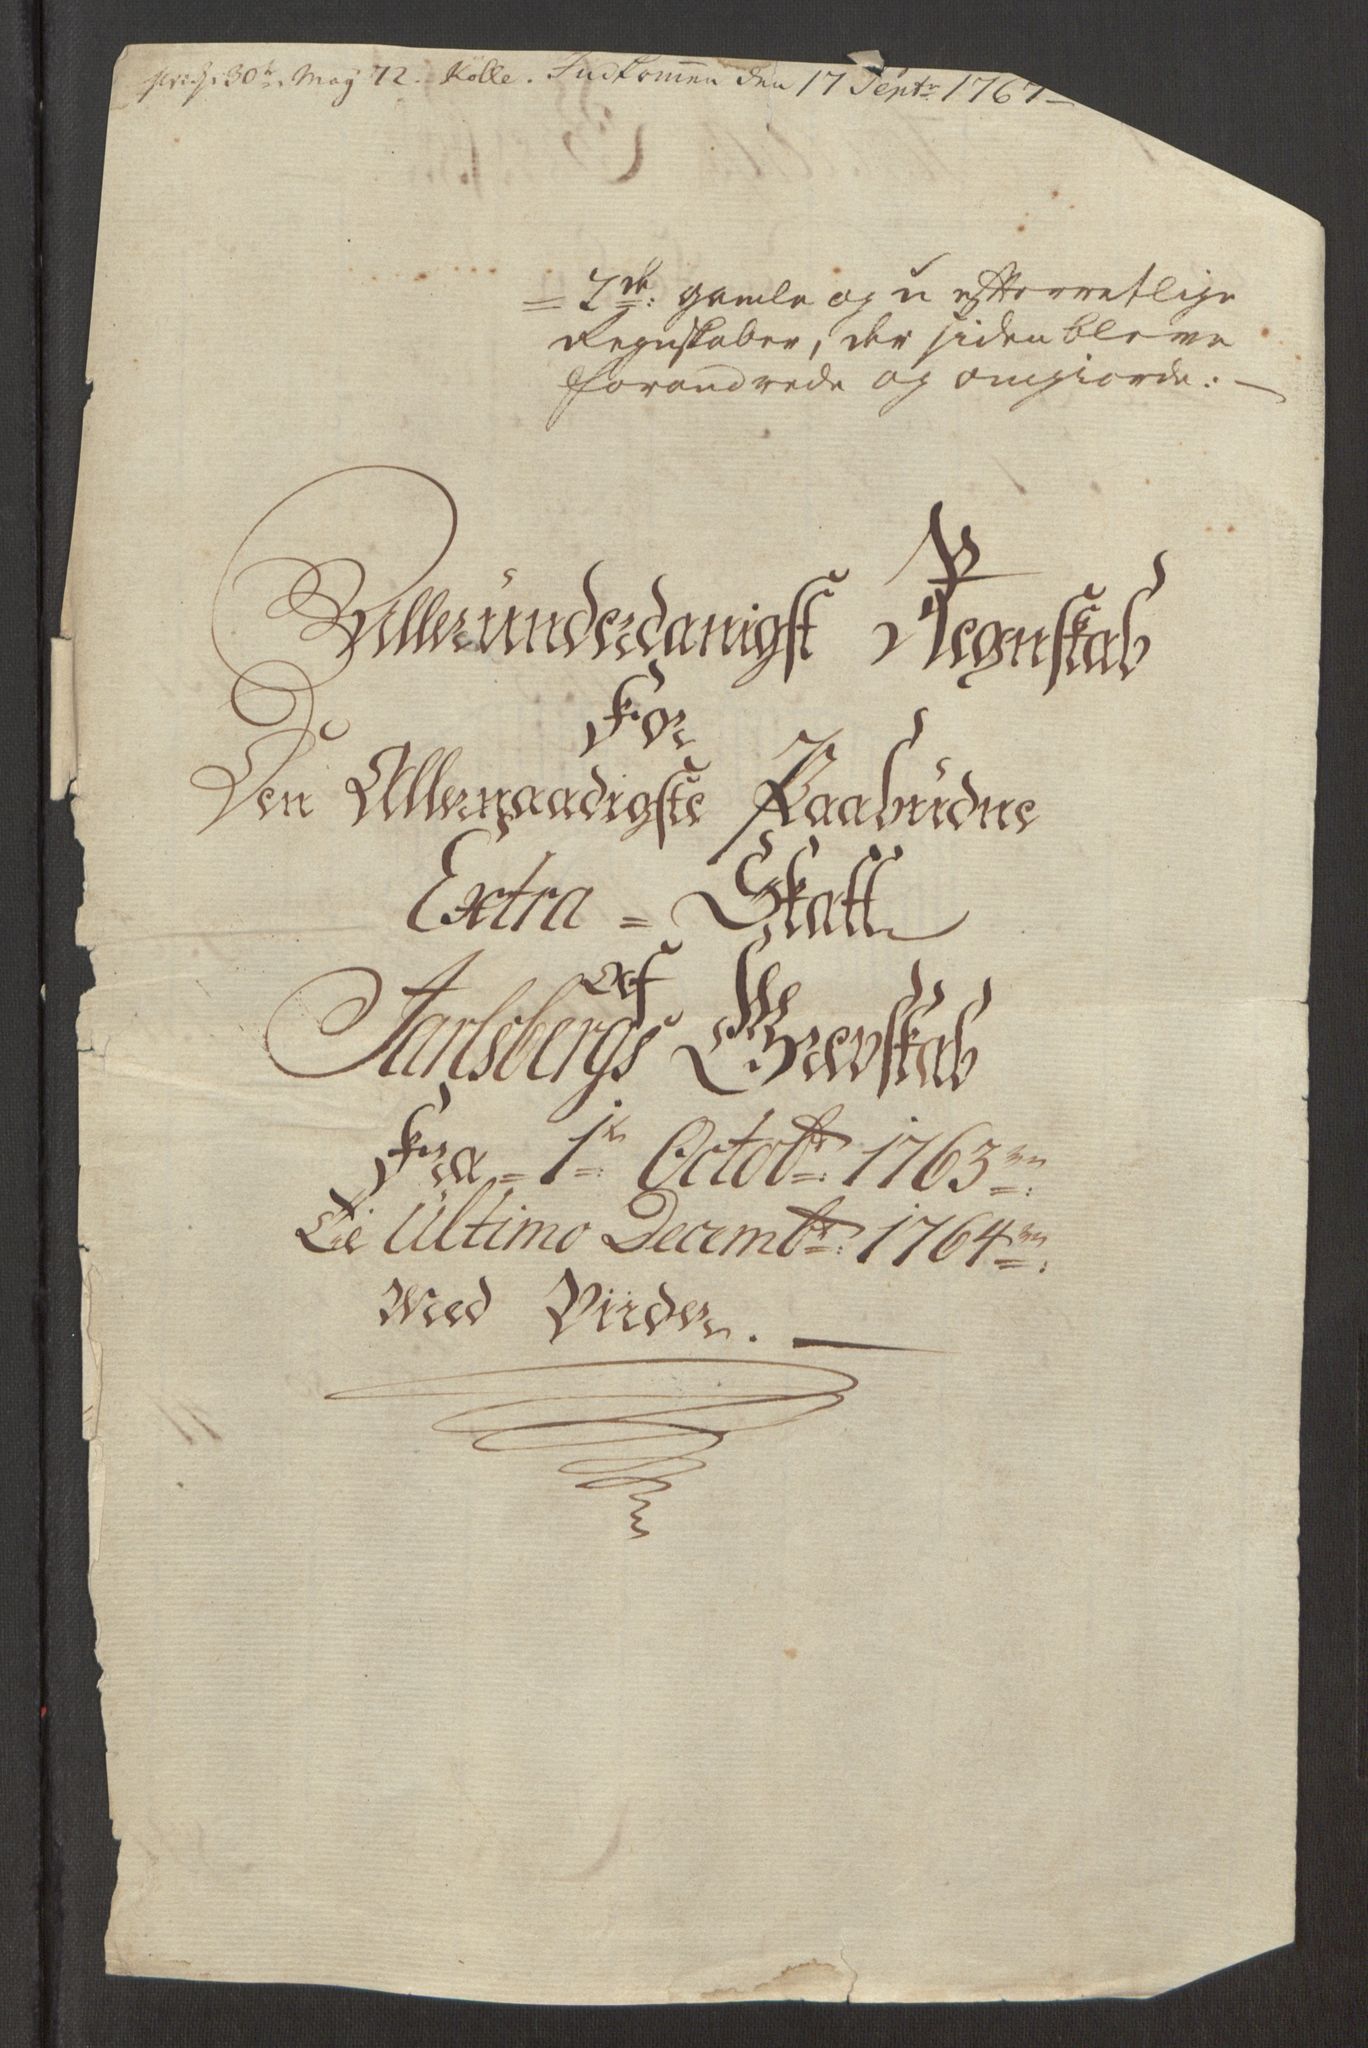 30te May 72. Kolle. Indkommen den 17 Septr 1767
= 2de: gamle og u efterretlige
Regnskaber, der siden bleve
forandrede og omgiorde: —
Alleründerdanigst Regnskab
For
Den Allernaadigste Paabüdne
Extra = Skatt
Af
Jarlsbergs Grevskab
Fra = 1te Octobr: 1763
Til Ultimo Decembr: 1764
Med Viider.